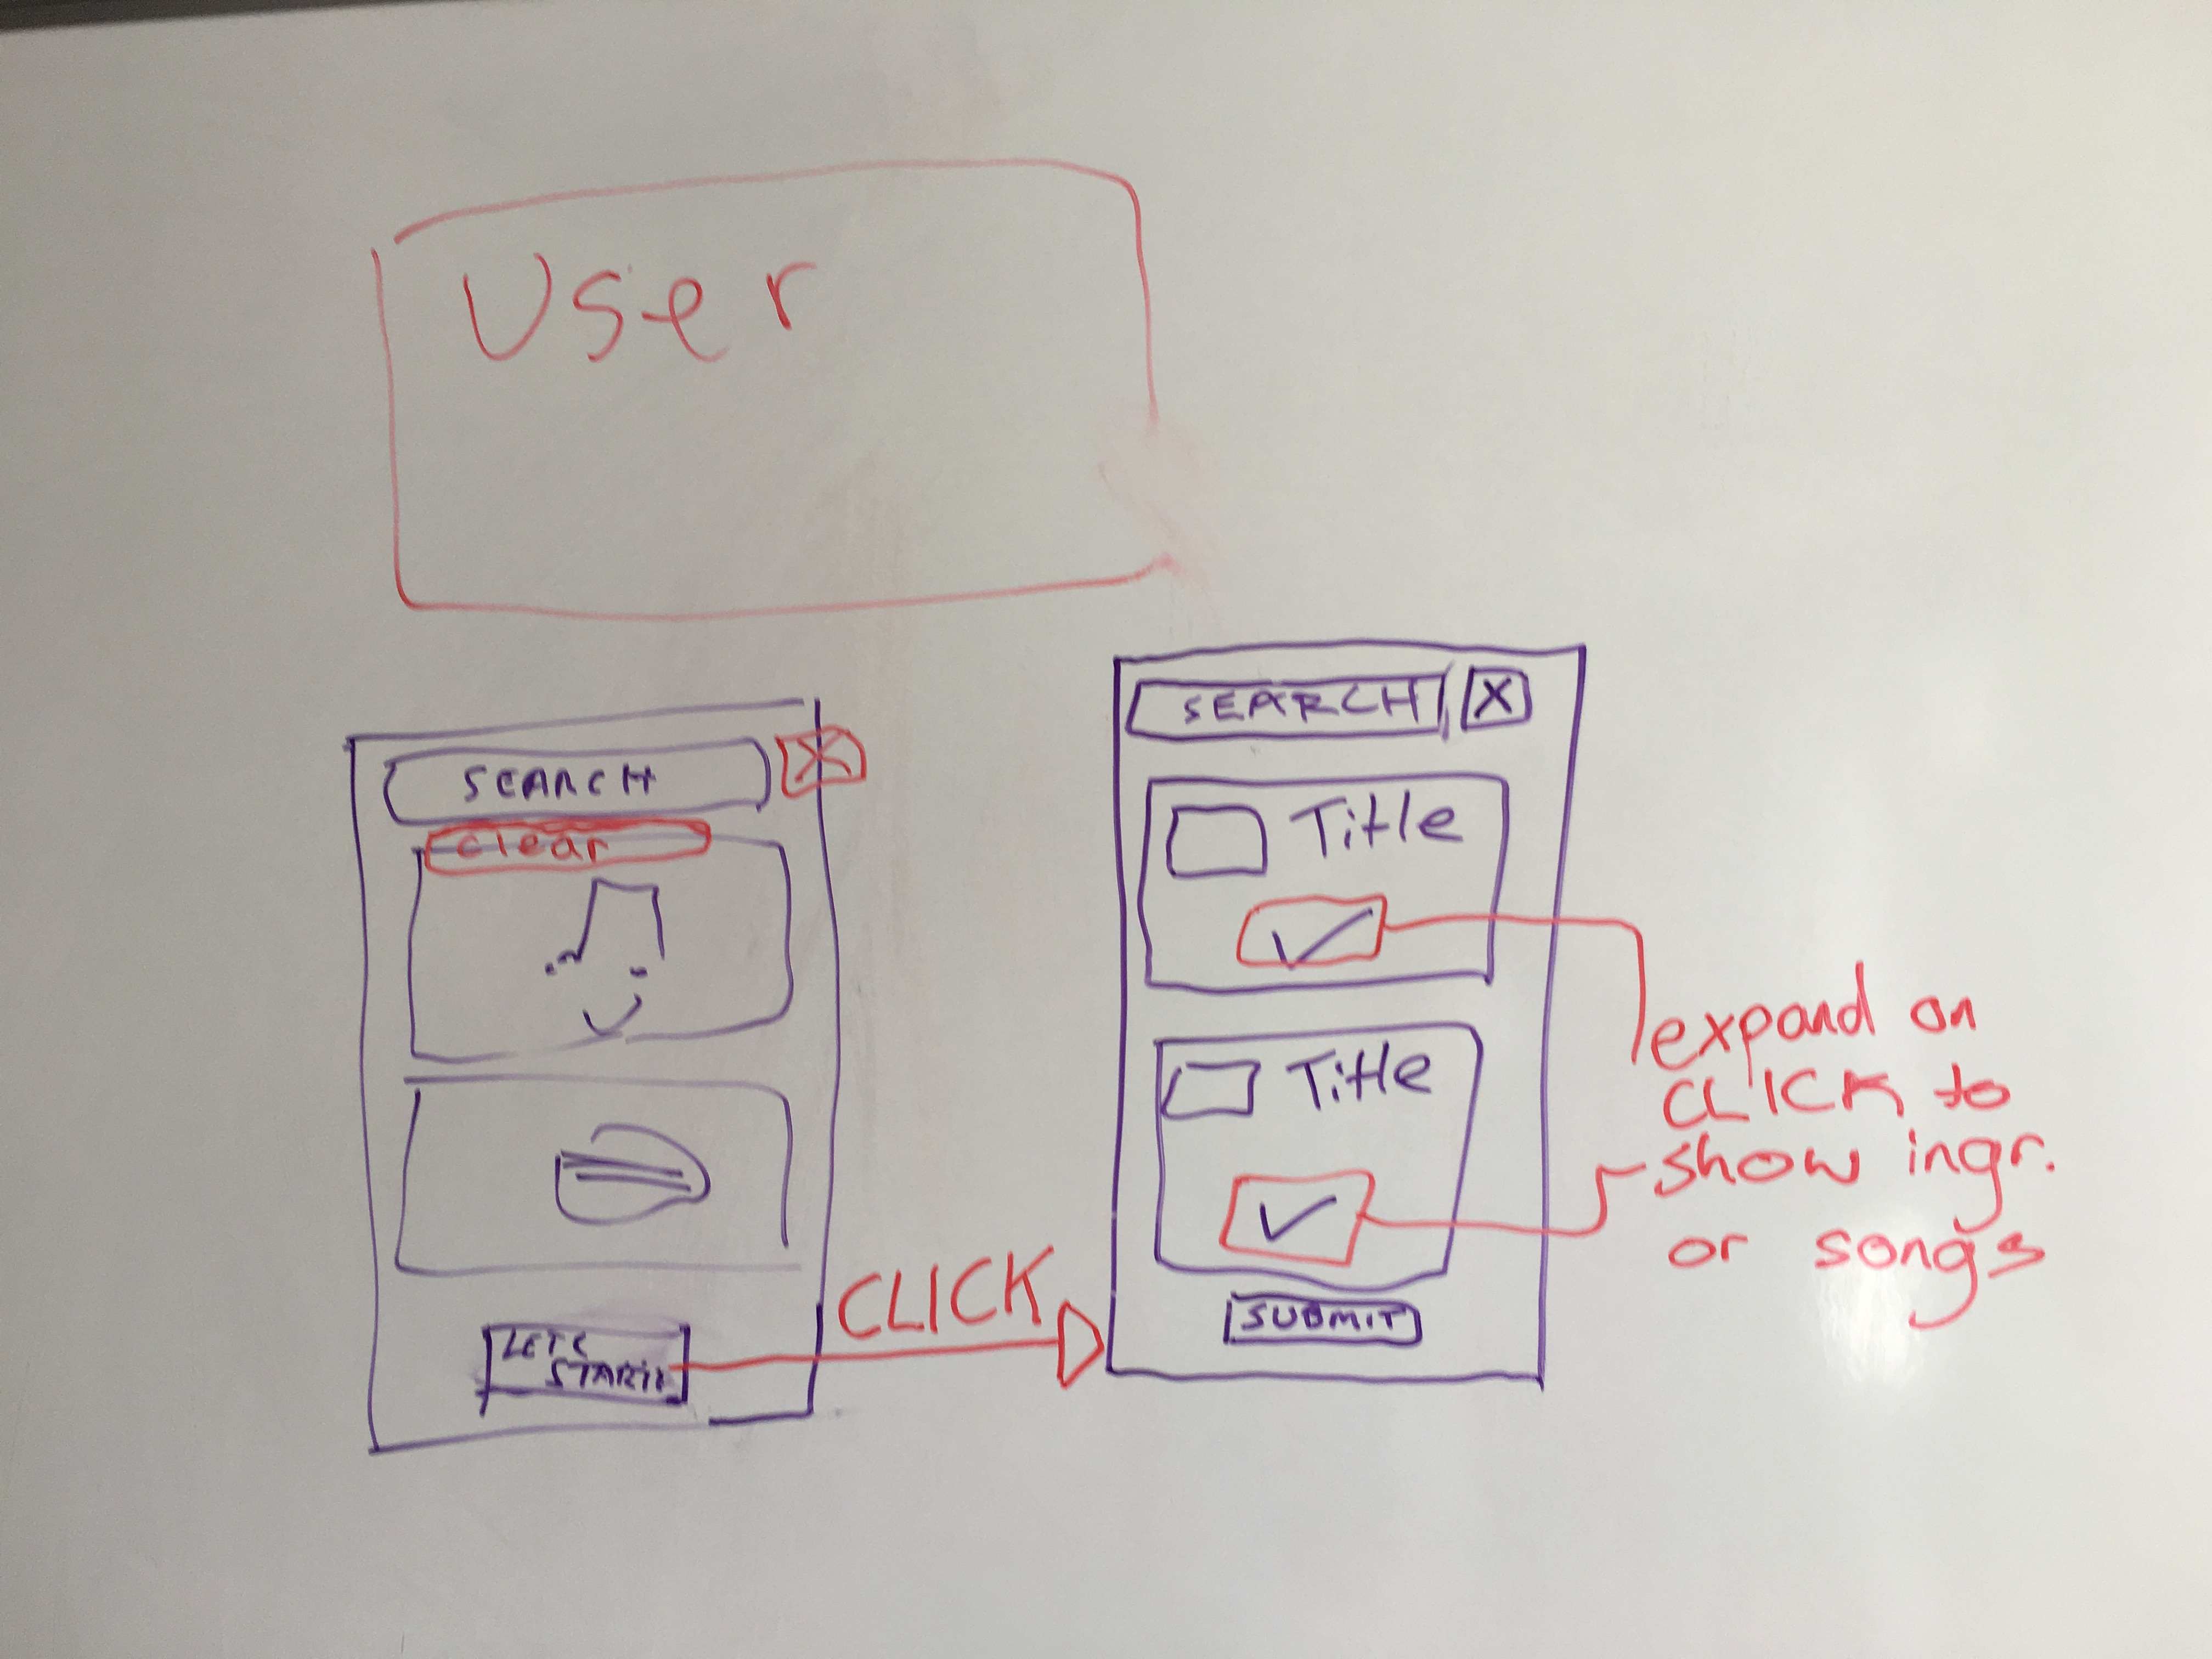 User
SEARCH X
clear
LETS
START
CLICK
SEARCH X
Title
Title
SUBMIT
expand on
CLICK to
show ingr.
or songs